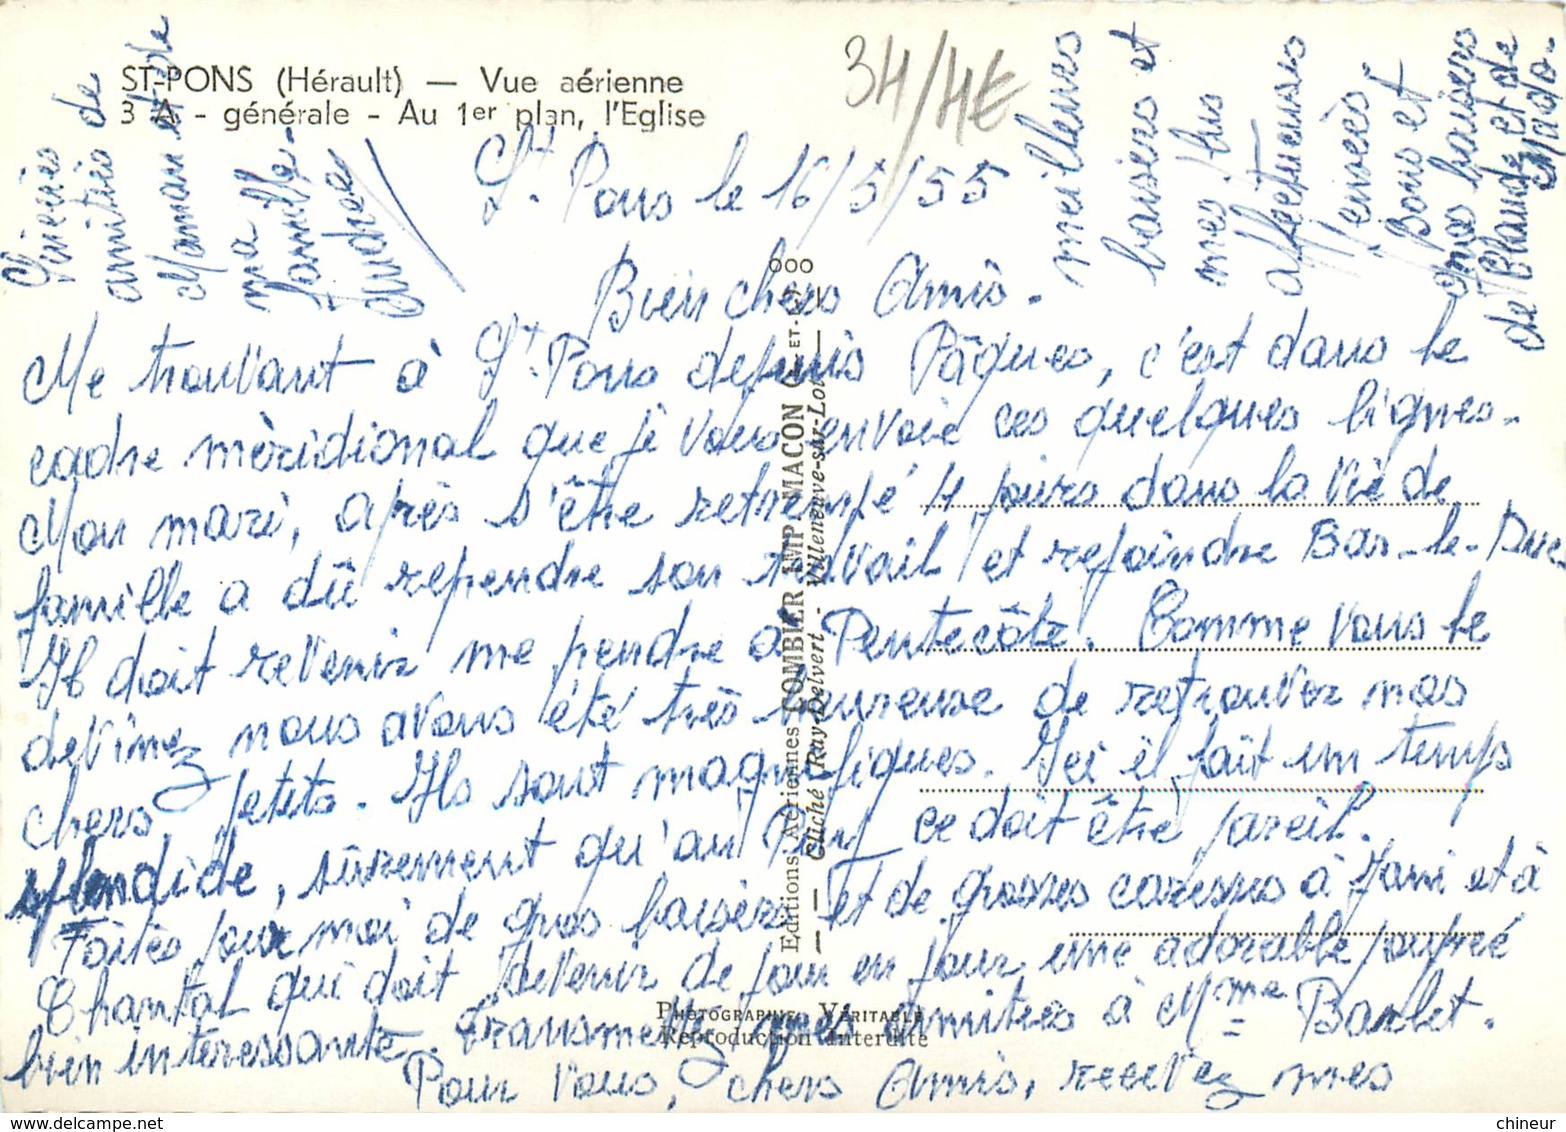 ST-PONS (Hérault) — Vue aérienne
3 A - générale - Au 1er plan, l'Eglise
34/4€
St. Pons le 16/5/55
Bien chers Amis.
Me trouvant à St. Pons depuis Pâques, c'est dans le
cadre méridional que je vous envoie ces quelques lignes.
Mon mari, après s'être retrempé 4 jours dans la vie de
famille a dû reprendre son travail et rejoindre Bar-le-Duc
Il doit revenir me prendre à Pentecôte. Comme vous le
devinez nous avons été très heureuse de retrouver nos
chers petits. Ils sont magnifiques. Ici il fait un temps
splendide, sûrement qu'au ce doit être pareil.
Faites pour moi de gros baisers et de grosses caresses à Jani et à
Chantal qui doit devenir de jour en jour une adorable poupée
bien intéressante. Transmettez mes amitiés à Mme Barlet.
Pour vous, chers Amis, recevez mes
meilleures
baisers et
mes plus
affectueuses
pensées
Bons et
gros baisers
de Claude et de
Mado.
Sincères
amitiés de
Maman et de
ma
famille.
Andrée
Editions Aériennes COMBIER IMP. MACON (S.-ET-L.) OOO
— Cliché Ray-Delvert - Villeneuve-sur-Lot —
PHOTOGRAPHIE VÉRITABLE
Reproduction interdite
www.delcampe.net
chineur